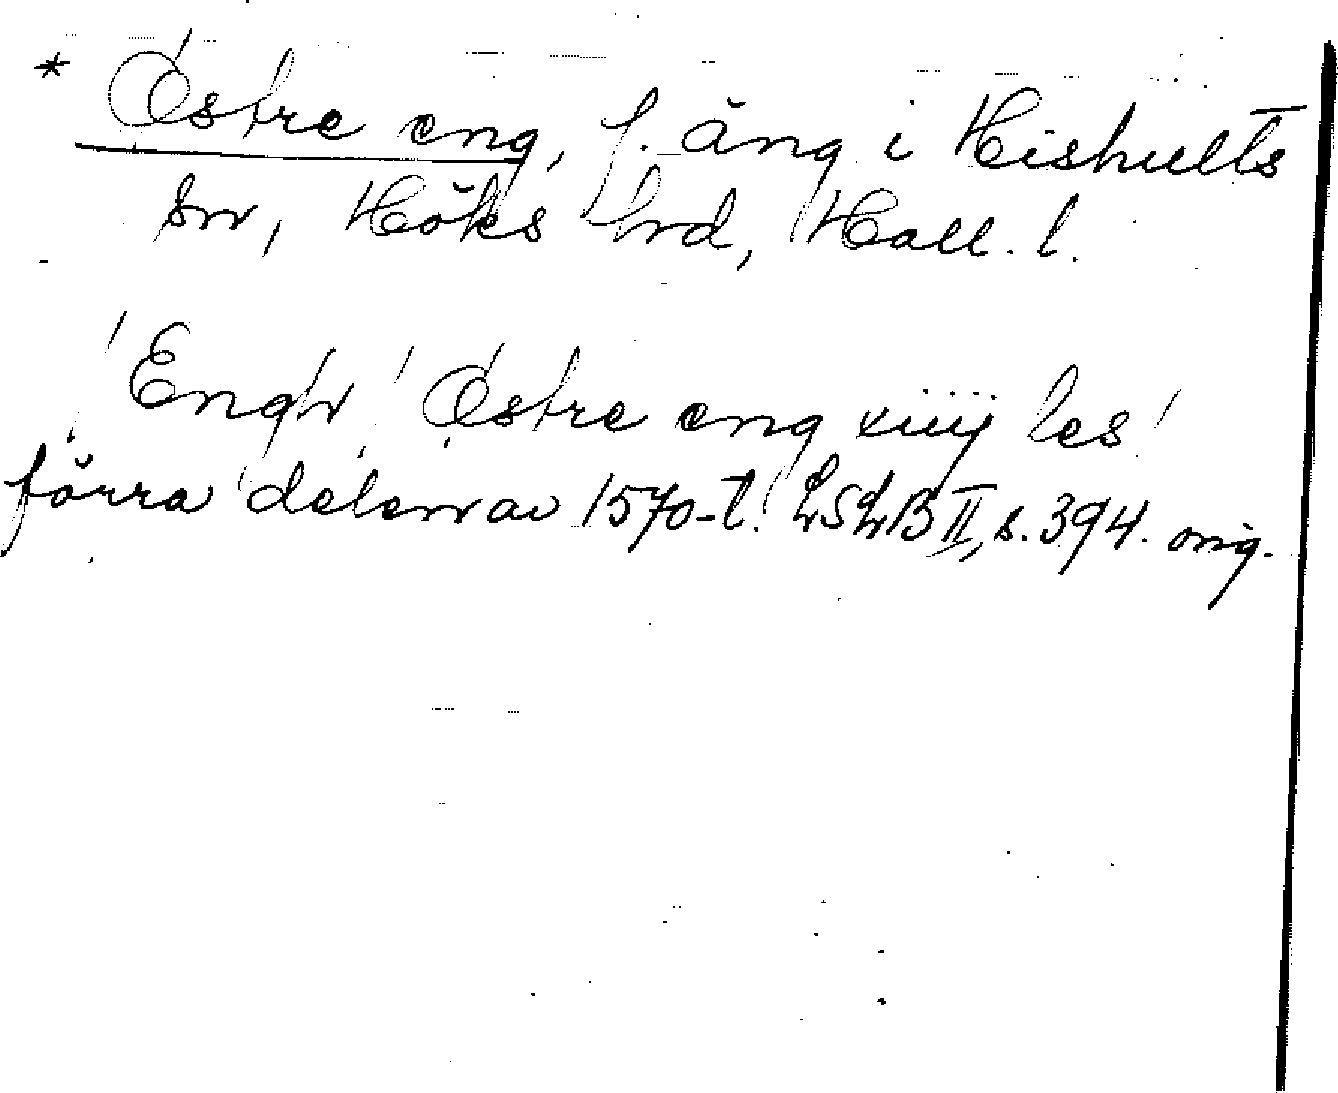 * Østre eng, f. äng i Hishults
sn, Höks hrd, Hall. l.
'Engh' 'Østre eng xiiij les'
förra delen av 1570-t. LSLB II, s. 394. orig.